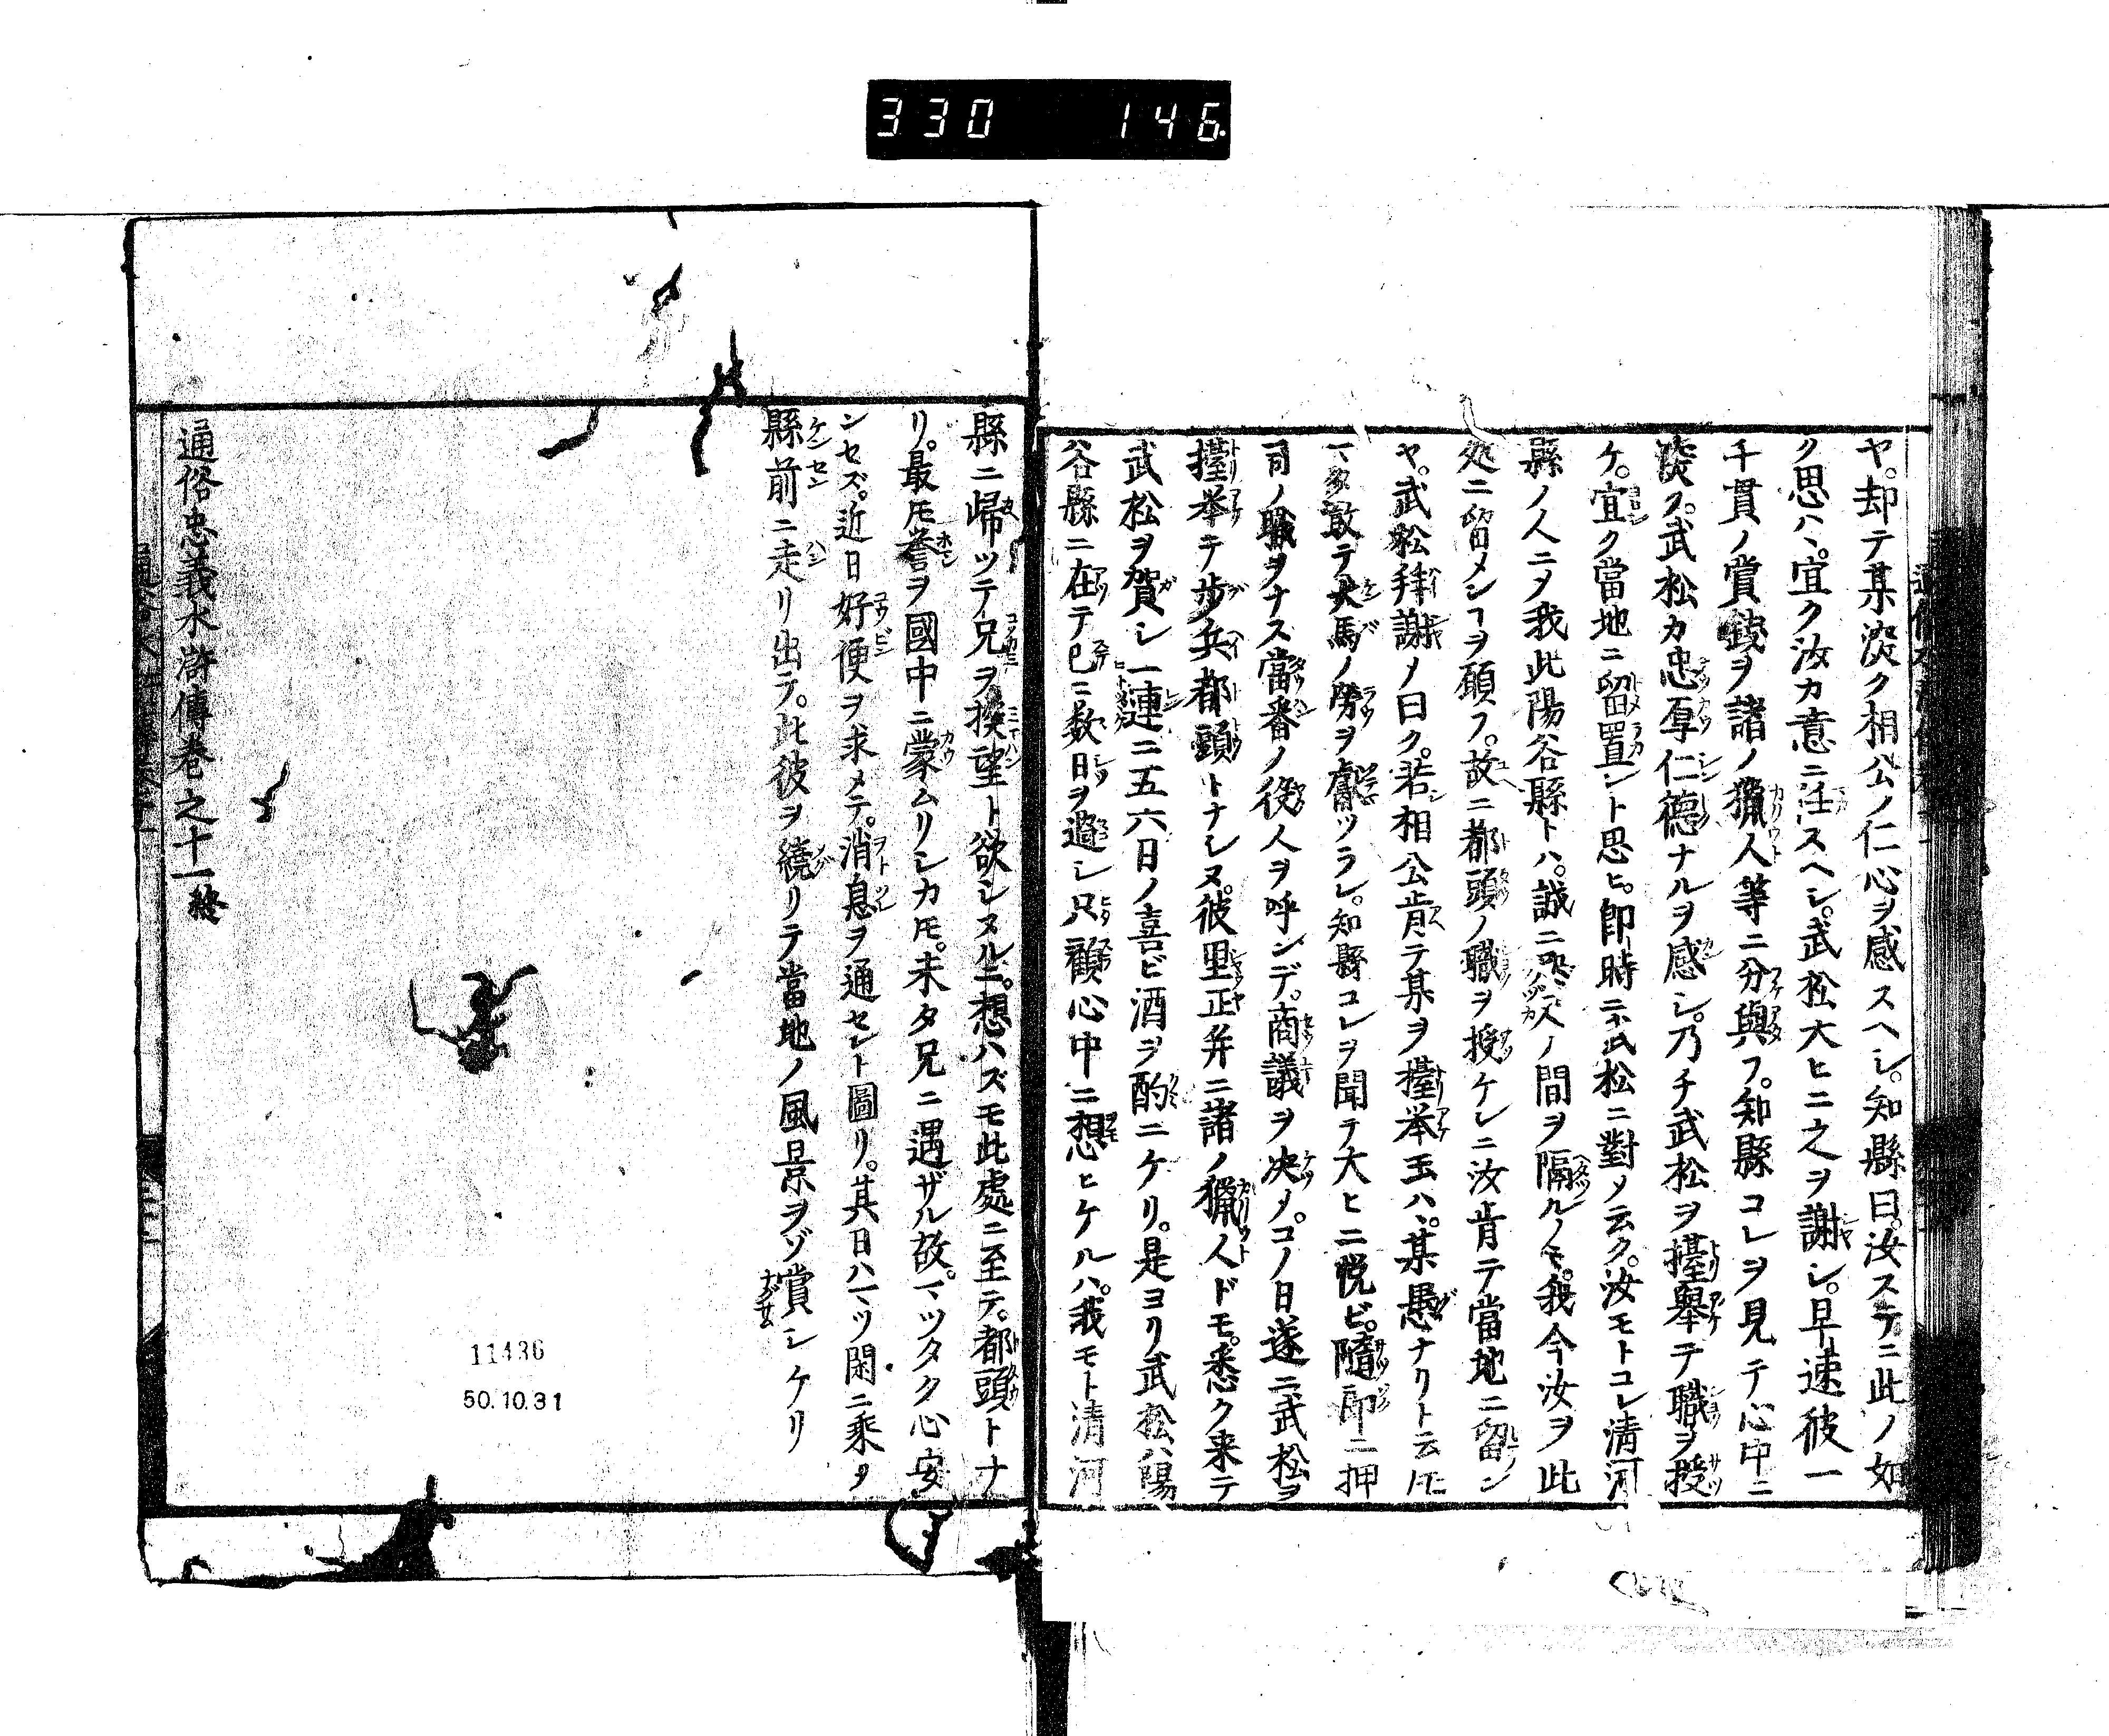 330 146
ヤ。却テ某淡ク相公ノ仁心ヲ感スヘシ。知縣曰。汝ステニ此ノ如
ク思ハヽ。宜ク汝カ意ニ任スヘシ。武松大ヒニ之ヲ謝シ。早速彼一
千貫ノ賞錢ヲ諸ノ獵人等ニ分與フ。知縣コレヲ見テ心中ニ
淡フ。武松カ忠厚仁德ナルヲ感シ。乃チ武松ヲ擡舉テ職ヲ授
ケ。宜ク當地ニ留置ント思ヒ。即時ニ武松ニ對ノ云ク。汝モトコレ淸河
縣ノ人ニノ我此陽谷縣トハ。誠ニ咫尺ノ間ヲ隔ルノミ。我今汝ヲ此
処ニ留メンヿヲ願フ。故ニ都頭ノ職ヲ授ケンニ汝肯テ當地ニ留ン
ヤ。武松拜謝ノ曰ク。若相公肯テ某ヲ擡挙玉ハヽ。某愚ナリト云ㇳモ
敢テ犬馬ノ勞ヲ獻ツラン。知縣コレヲ聞テ大ヒニ悦ビ。隨即ニ押
司ノ職ヲナス當番ノ役人ヲ呼ンデ。商議ヲ决ノ。コノ日遂ニ武松ヲ
擡挙テ步兵都頭トナシヌ。彼里正并ニ諸ノ獵人ドモ。悉ク来テ
武松ヲ賀シ一連ニ五六日ノ喜ビ酒ヲ酌ニケリ。是ヨリ武松ハ陽
谷縣ニ在テ已ニ数日ヲ過シ只顧心中ニ想ヒケルハ。我モト淸河
縣ニ歸ツテ兄ヲ探望ト欲シヌルニ。想ハズモ此處ニ至テ。都頭トナ
リ。最モ誉ヲ國中ニ蒙ムリシカ𪜈。未タ兄ニ遇ザル故。マツタク心安
ンセズ。近日好便ヲ求メテ。消息ヲ通セント圖リ。其日ハマヅ閑ニ乘ノ
縣前ニ走リ出テ。此彼ヲ繞リテ當地ノ風景ヲゾ賞シケリ
通俗忠義水滸傳卷之十一終
11436
50.10.31